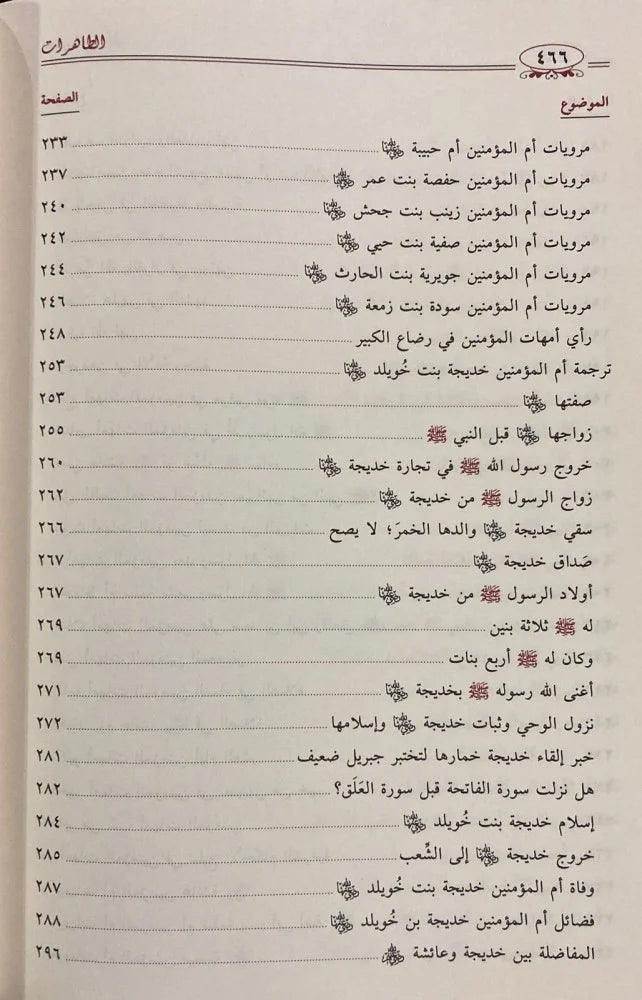 ٤٦٦ الطاهرات
الموضوع الصفحة
مرويات أم المؤمنين أم حبيبة رضي الله عنها ٢٣٣
مرويات أم المؤمنين حفصة بنت عمر رضي الله عنها ٢٣٧
مرويات أم المؤمنين زينب بنت جحش رضي الله عنها ٢٤٠
مرويات أم المؤمنين صفية بنت حيي رضي الله عنها ٢٤٢
مرويات أم المؤمنين جويرية بنت الحارث رضي الله عنها ٢٤٤
مرويات أم المؤمنين سودة بنت زمعة رضي الله عنها ٢٤٦
رأي أمهات المؤمنين في رضاع الكبير ٢٤٨
ترجمة أم المؤمنين خديجة بنت خُويلد رضي الله عنها ٢٥٣
صفتها رضي الله عنها ٢٥٣
زواجها رضي الله عنها قبل النبي ﷺ ٢٥٥
خروج رسول الله ﷺ في تجارة خديجة رضي الله عنها ٢٦٠
زواج الرسول ﷺ من خديجة رضي الله عنها ٢٦٢
سقي خديجة رضي الله عنها والدها الخمرَ؛ لا يصح ٢٦٦
صَداق خديجة رضي الله عنها ٢٦٧
أولاد الرسول ﷺ من خديجة رضي الله عنها ٢٦٧
له ﷺ ثلاثة بنين ٢٦٩
وكان له ﷺ أربع بنات ٢٦٩
أغنى الله رسوله ﷺ بخديجة رضي الله عنها ٢٧١
نزول الوحي وثبات خديجة رضي الله عنها وإسلامها ٢٧٢
خبر إلقاء خديجة خمارها لتختبر جبريل ضعيف ٢٨١
هل نزلت سورة الفاتحة قبل سورة العَلَق؟ ٢٨٢
إسلام خديجة بنت خُويلد رضي الله عنها ٢٨٤
خروج خديجة رضي الله عنها إلى الشِّعب ٢٨٥
وفاة أم المؤمنين خديجة بنت خُويلد رضي الله عنها ٢٨٧
فضائل أم المؤمنين خديجة بن خُويلد رضي الله عنها ٢٨٨
المفاضلة بين خديجة وعائشة رضي الله عنهما ٢٩٦